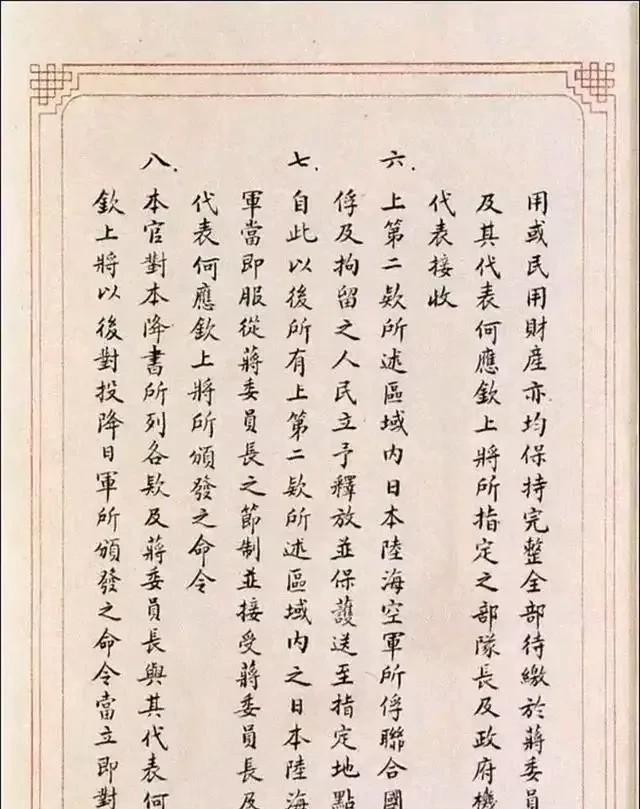 用或民用財產亦均保持完整全部待繳於蔣委員
及其代表何應欽上將所指定之部隊長及政府機
代表接收
六．上第二欵所述區域內日本陸海空軍所俘聯合國
俘及拘留之人民立予釋放並保護送至指定地點
七．自此以後所有上第二欵所述區域內之日本陸海
軍當即服從蔣委員長之節制並接受蔣委員長及
代表何應欽上將所頒發之命令
八．本官對本降書所列各欵及蔣委員長與其代表何
欽上將以後對投降日軍所頒發之命令當立即對